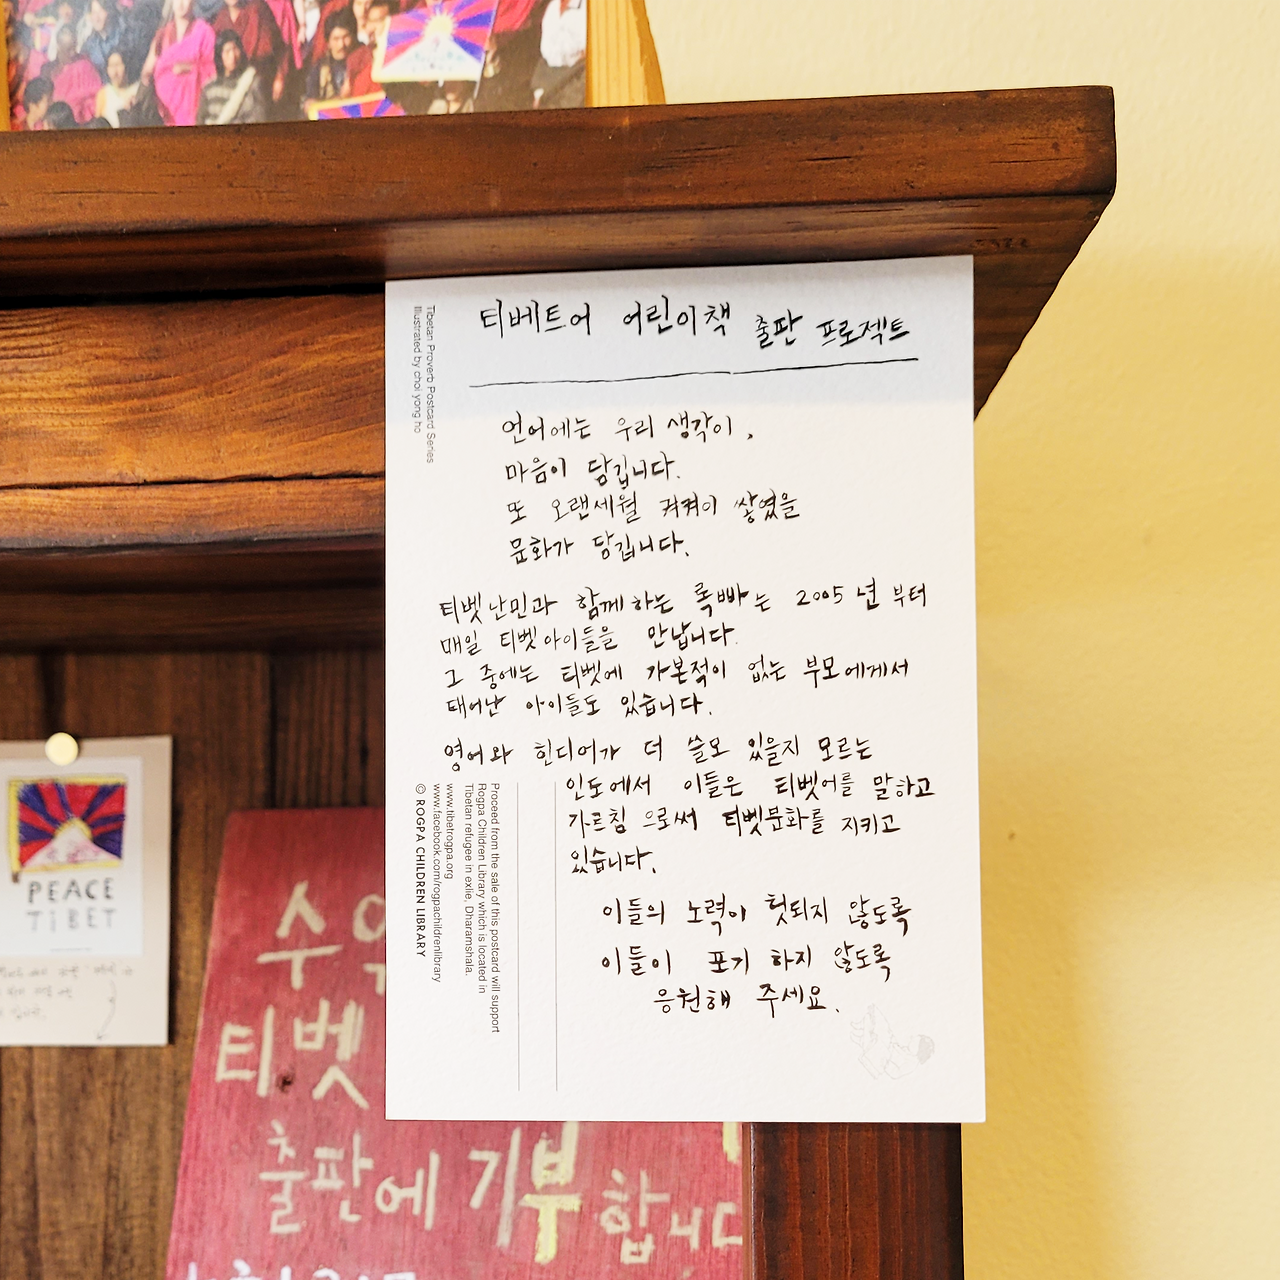 티베트어 어린이책 출판 프로젝트
언어에는 우리 생각이,
마음이 담깁니다.
또 오랜세월 켜켜이 쌓였을
문화가 담깁니다.
티벳난민과 함께하는 록빠는 2005년부터
매일 티벳아이들을 만납니다.
그 중에는 티벳에 가본적이 없는 부모에게서
태어난 아이들도 있습니다.
영어와 힌디어가 더 쓸모 있을지 모르는
인도에서 이들은 티벳어를 말하고
가르침으로써 티벳문화를 지키고
있습니다.
이들의 노력이 헛되지 않도록
이들이 포기 하지 않도록
응원해 주세요.
Tibetan Proverb Postcard Series
Illustrated by choi yong ho
Proceed from the sale of this postcard will support
Rogpa Children Library which is located in
Tibetan refugee in exlie, Dharamshala.
www.tibetrogpa.org
www.facebook.com/rogpachildrenlibrary
© ROGPA CHILDREN LIBRARY
PEACE
TIBET
티벳
출판에 기부합니다